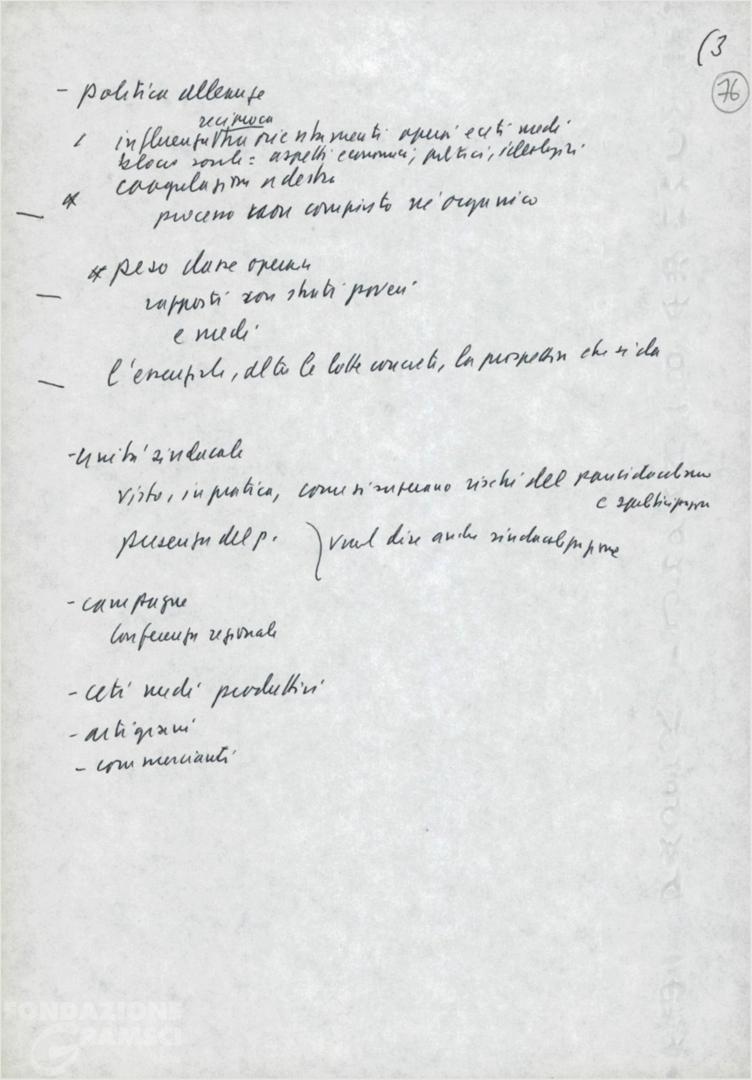 (3
76
- politica alleanze
reciproca
influenza tra orientamenti operai e ceti medi
blocco sociale = aspetti economici, politici, ideologici
* coagulazione a destra
— processo non compiuto né organico
* peso classe operaia
— rapporti con strati poveri
e medi
— l'essenziale, oltre le lotte concrete, la prospettiva che si dà
- unità sindacale
visto, in pratica, come si superano rischi del pansindacalismo
e
presenza del p. ) vuol dire anche
- campagne
Conferenza regionale
- ceti medi produttivi
- artigiani
- commercianti
FONDAZIONE
GRAMSCI